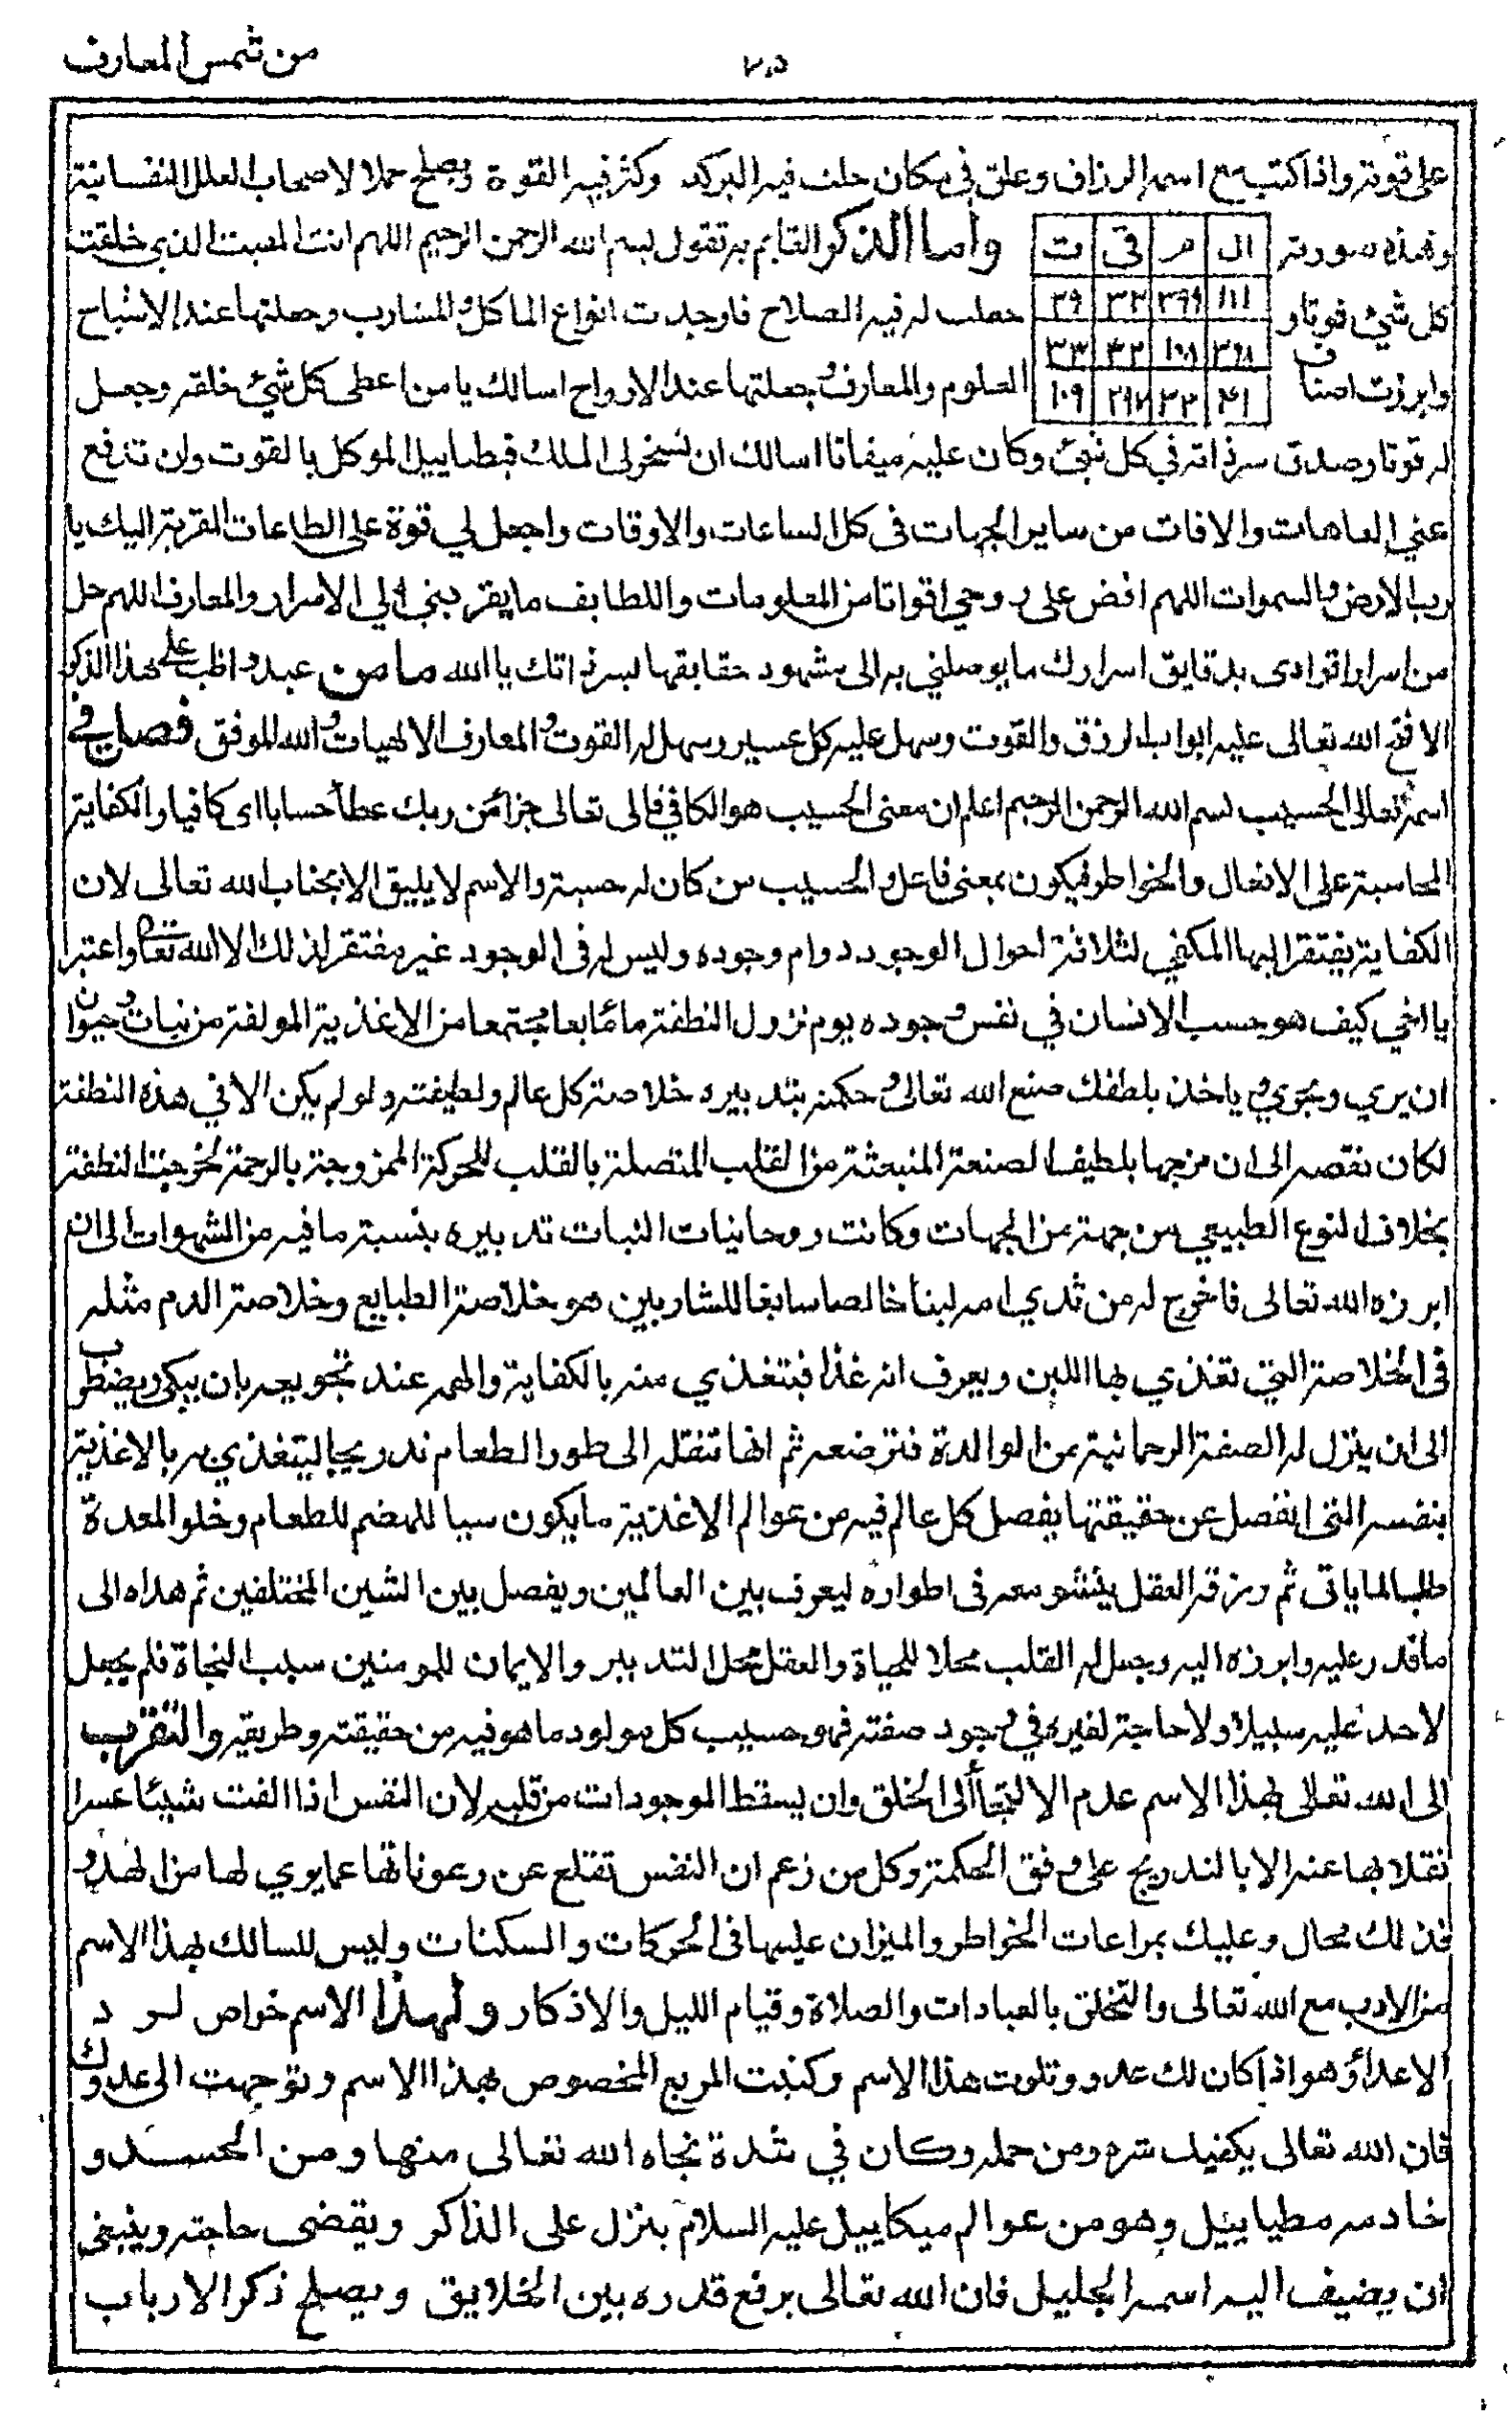 من شمس المعارف
٢٠٥
على قوته واذا كتب مع اسمه الرزاق وعلق في مكان حلت فيه البركه وكثر فيه القوة ويصلح حملا لاصحاب العلل النفسانية
وهذه صورته
ال م قي ت
١١١ ٣٩٩ ٣٢ ٣٩
٣٩٨ ١٠٨ ٤٢ ٣٣
٤١ ٣٣ ١٠٩
واما الذكر القايم به تقول بسم الله الرحمن الرحيم اللهم انت المقيت الذي خلقت
كل شيئ قوتا و جعلت له فيه الصلاح فاوجدت انواع الماكل والمشارب وجعلتها عند الاشباح
وابرزت اصناف العلوم والمعارف وجعلتها عند الارواح اسالك يا من اعطى كل شيئ خلقه وجعل
له قوتا وصدق سر ذاته في كل شيئ وكان عليه ميقاتا اسالك ان تسخر لي الملك قبطاييل الموكل بالقوت وان تدفع
عني العاهات والافات من ساير الجهات في كل الساعات والاوقات واجعل لي قوة على الطاعات المقربة اليك يا
رب الارض والسموات اللهم افض على روحي اقواتا من المعلومات واللطايف ما يقربني الي الاسرار والمعارف اللهم حل
من اسرار فوادى بدقايق اسرارك ما يوصلني به الى مشهود حقايقها لسر ذاتك يا الله ما من عبد واظب على هذا الذكر
الا فتح الله تعالى عليه ابواب الرزق والقوت وسهل عليه كل عسير وسهل له القوت والمعارف الالهيات والله الموفق فصل في
اسمه تعالى الحسيب بسم الله الرحمن الرحيم اعلم ان معنى الحسيب هو الكافي قال تعالى جزأ من ربك عطأ حسابا اى كافيا والكفاية
المحاسبة على الافعال والخواطر فيكون بمعنى فاعل والحسيب من كان له حسبة والاسم لا يليق الا بجناب الله تعالى لان
الكفاية يفتقر اليها المكفي لثلاثة احوال الوجود دوام وجوده وليس له في الوجود غير مفتقر لذلك الا الله تعالى واعتبر
يا اخي كيف هو حسب الانسان في نفس وجوده يوم نزول النطفة مائعا مجتمعا من الاغذية المولفة من نبات وحيوان
ان يري ويجري وياخذ بلطفك صنع الله تعالى وحكمته بتدبيره خلاصة كل عالم ولطيفته ولو لم يكن الا في هذه النطفة
لكان نقصه الى ان مزجها بلطيف الصنعة المنبعثة من القلب المتصلة بالقلب للحركة الممزوجة بالرحمة لخرجت النطفة
بخلاف النوع الطبيعي من جهة من الجهات وكانت روحانيات النبات تدبيره بنسبة ما فيه من الشهوات الى ان
ابرزه الله تعالى فاخرج له من ثدي امه لبنا خالصا سايغا للشاربين هو خلاصة الطبايع وخلاصة الدم مثله
في الخلاصة التي تغذي بها اللبن ويعرف انه غذا فيتغذي منه بالكفاية والهمه عند تجويعه بان يبكي ويضطرب
الى ان ينزل له الصفة الرحمانية من الوالدة فترضعه ثم انها تنقله الى طور الطعام تدريجا ليتغذي به بالاغذية
بنفسه التي انفصل عن حقيقتها بفصل كل عالم فيه من عوالم الاغذية ما يكون سببا للهضم للطعام وخلو المعدة
طلبا لما ياتى ثم ورزقه العقل ينشو معه في اطواره ليعرف بين العالمين ويفصل بين الشين المختلفين ثم هداه الى
ما قدر عليه وابرزه اليه وجعل له القلب محلا للحياة والعقل محل التدبير والايمان للمومنين سبب النجاة فلم يجعل
لاحد عليه سبيلا ولا حاجة لغيره في وجود صفته فهو حسيب كل مولود ما هو فيه من حقيقته وطريقه والتقرب
الى الله تعالى بهذا الاسم عدم الالتجأ الى الخلق وان يسقط الموجودات من قلبه لان النفس اذا الفت شيئا عسر
نقلابها عنه الا بالتدريج على وفق الحكمة وكل من زعم ان النفس تقلع عن رعوناتها عما يوي لها من
فذلك محال وعليك بمراعات الخواطر والميزان عليها في الحركات والسكنات وليس للسالك بهذا الاسم
من الادب مع الله تعالى والتخلق بالعبادات والصلاة وقيام الليل والاذكار ولهذا الاسم خواص لرد
الاعدأ وهو اذا كان لك عدو وتلوت هذا الاسم وكتبت المربع المخصوص بهذا الاسم وتوجهت الى عدوك
فان الله تعالى يكفيك شره ومن حمله وكان في شدة نجاه الله تعالى منها ومن الحسد و
خادمه مطياييل وهو من عوالم ميكاييل عليه السلام ينزل على الذاكر ويقضى حاجته وينبغي
ان يضيف اليه اسمه الجليل فان الله تعالى يرفع قدره بين الخلايق ويصلح ذكرا لارباب